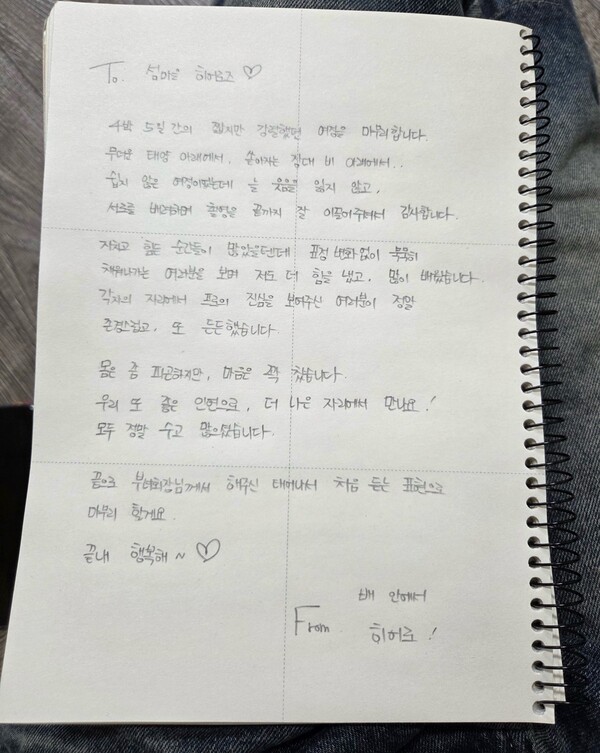 To. 섬마을 히어로즈 ♡
4박 5일 간의 짧지만 강렬했던 여정을 마무리합니다.
무더운 태양 아래에서, 쏟아지는 장대 비 아래에서..
쉽지 않은 여정이었는데 늘 웃음을 잃지 않고,
서로를 배려하며 촬영을 끝까지 잘 이끌어주셔서 감사합니다.
지치고 힘든 순간들이 많았을텐데 표정 변화 없이 묵묵히
채워나가는 여러분을 보며 저도 더 힘을 내고, 많이 배웠습니다.
각자의 자리에서 프로의 진심을 보여주신 여러분이 정말
존경스럽고, 또 든든했습니다
몸은 좀 피곤하지만, 마음은 꽉 찼습니다.
우리 또 좋은 인연으로, 더 나은 자리에서 만나요!
모두 정말 수고 많으셨습니다.
끝으로 부녀회장님께서 해주신 태어나서 처음 듣는 표현으로
마무리 할게요.
끝내 행복해~ ♡
배 안에서
From. 히어로!